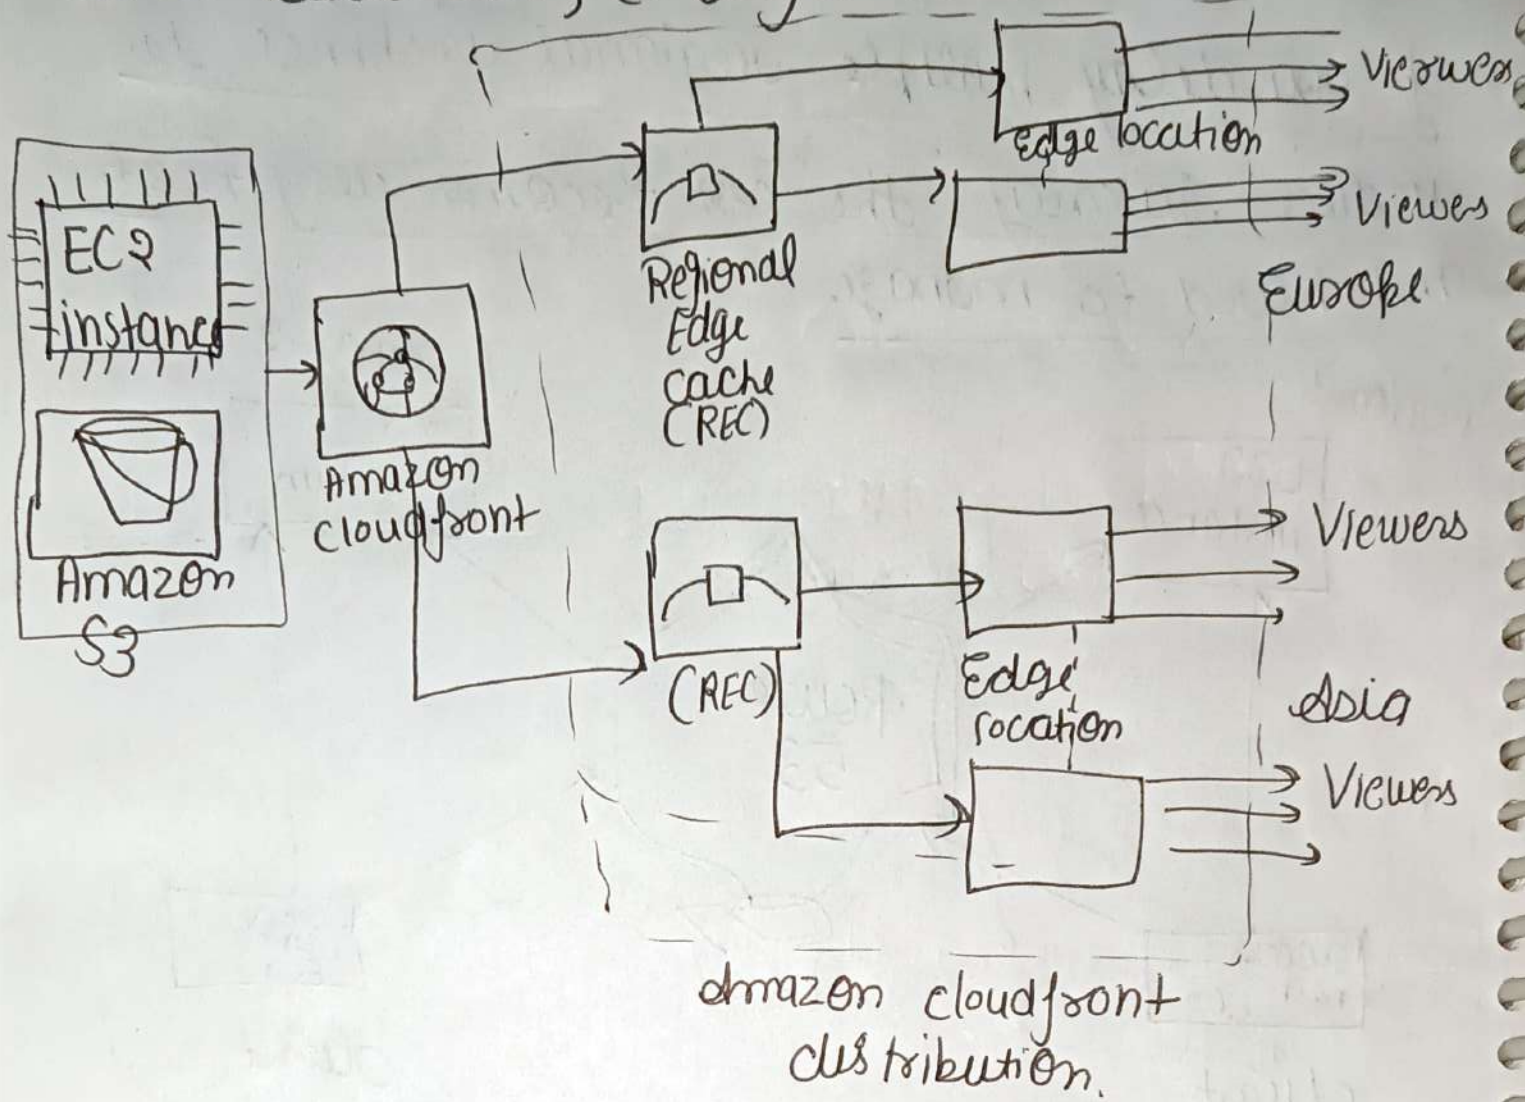 EC2
instance
Amazon
S3
Amazon
cloudfront
Regional
Edge
cache
(REC)
Edge location
Viewers
Viewers
Europe.
(REC)
Edge
location
Viewers
Asia
Viewers
Amazon cloudfront
distribution.